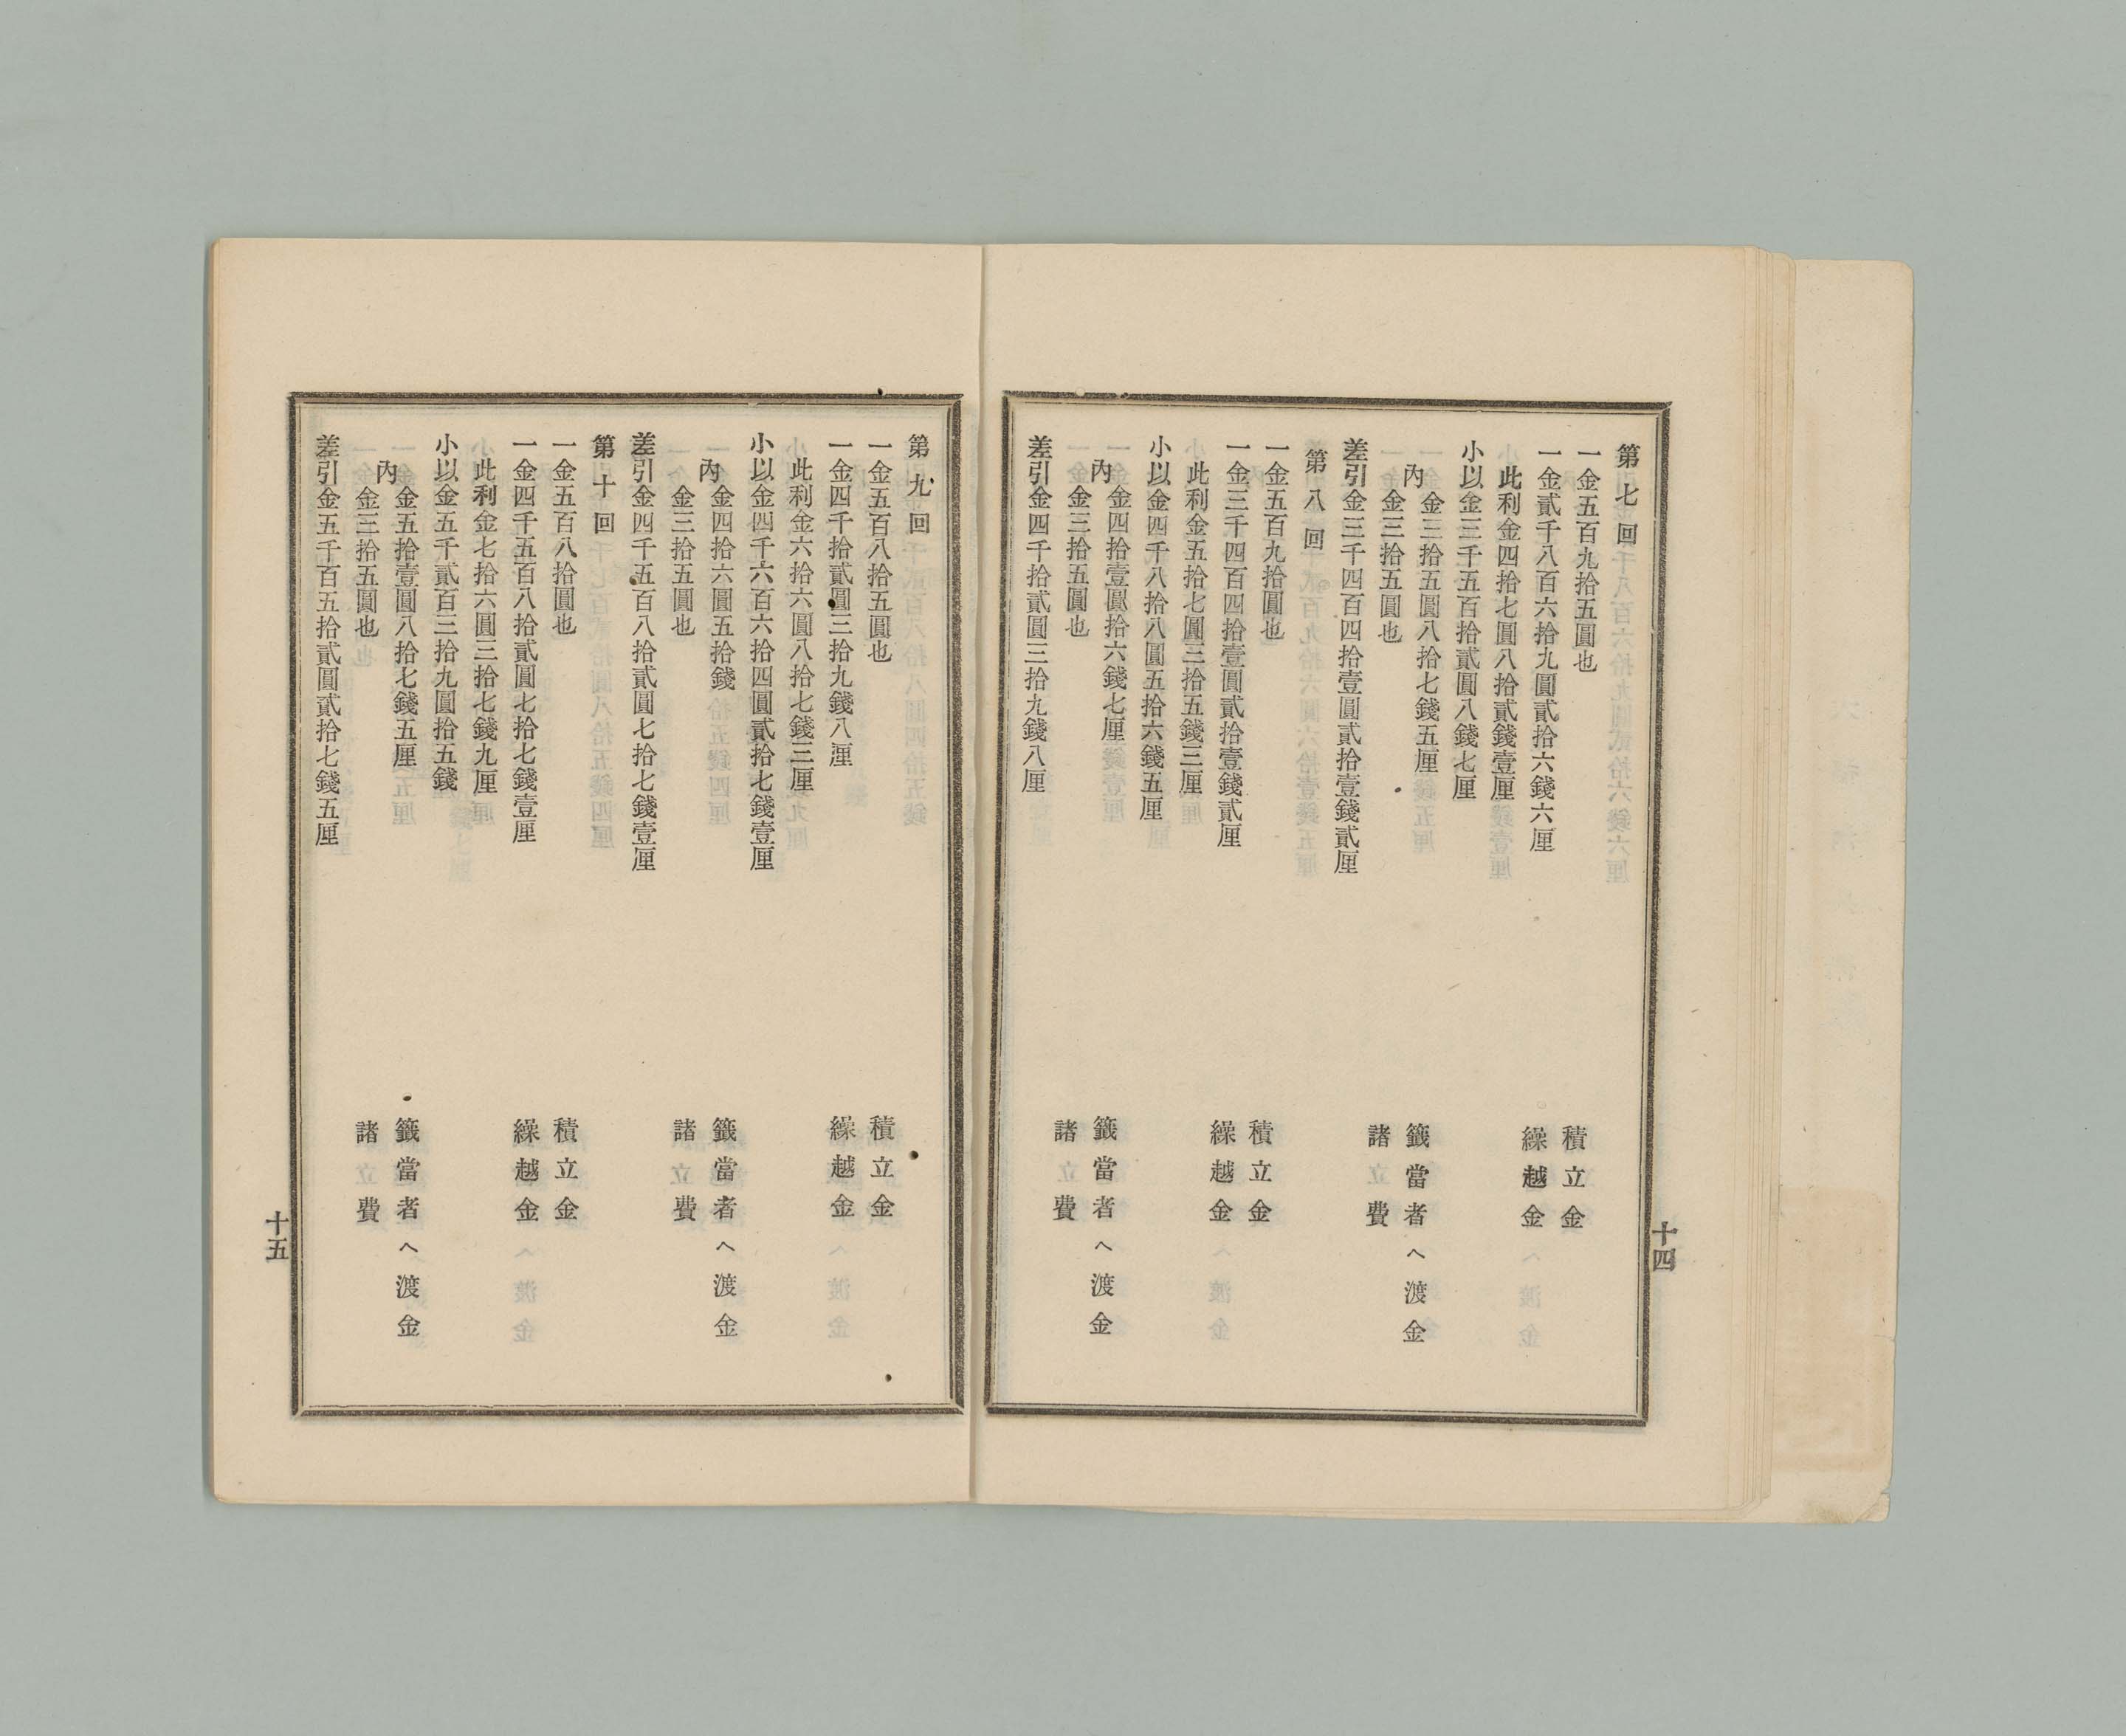 第七回
一金五百九拾五圓也 積立金
一金貳千八百六拾九圓貳拾六錢六厘 繰越金
此利金四拾七圓八拾貳錢壹厘
小以金三千五百拾貳圓八錢七厘
內 金三拾五圓八拾七錢五厘 籤當者へ渡金
金三拾五圓也 諸費
差引金三千四百四拾壹圓貳拾壹錢貳厘
第八回
一金五百九拾圓也 積立金
一金三千四百四拾壹圓貳拾壹錢貳厘 繰越金
此利金五拾七圓三拾五錢三厘
小以金四千八拾八圓五拾六錢五厘
內 金四拾壹圓拾六錢七厘 籤當者へ渡金
金三拾五圓也 諸費
差引金四千拾貳圓三拾九錢八厘
十四
第九回
一金五百八拾五圓也 積立金
一金四千拾貳圓三拾九錢八厘 繰越金
此利金六拾六圓八拾七錢三厘
小以金四千六百六拾四圓貳拾七錢壹厘
內 金四拾六圓五拾錢 籤當者へ渡金
金三拾五圓也 諸費
差引金四千五百八拾貳圓七拾七錢壹厘
第十回
一金五百八拾圓也 積立金
一金四千五百八拾貳圓七拾七錢壹厘 繰越金
此利金七拾六圓三拾七錢九厘
小以金五千貳百三拾九圓拾五錢
內 金五拾壹圓八拾七錢五厘 籤當者へ渡金
金三拾五圓也 諸費
差引金五千百五拾貳圓貳拾七錢五厘
十五